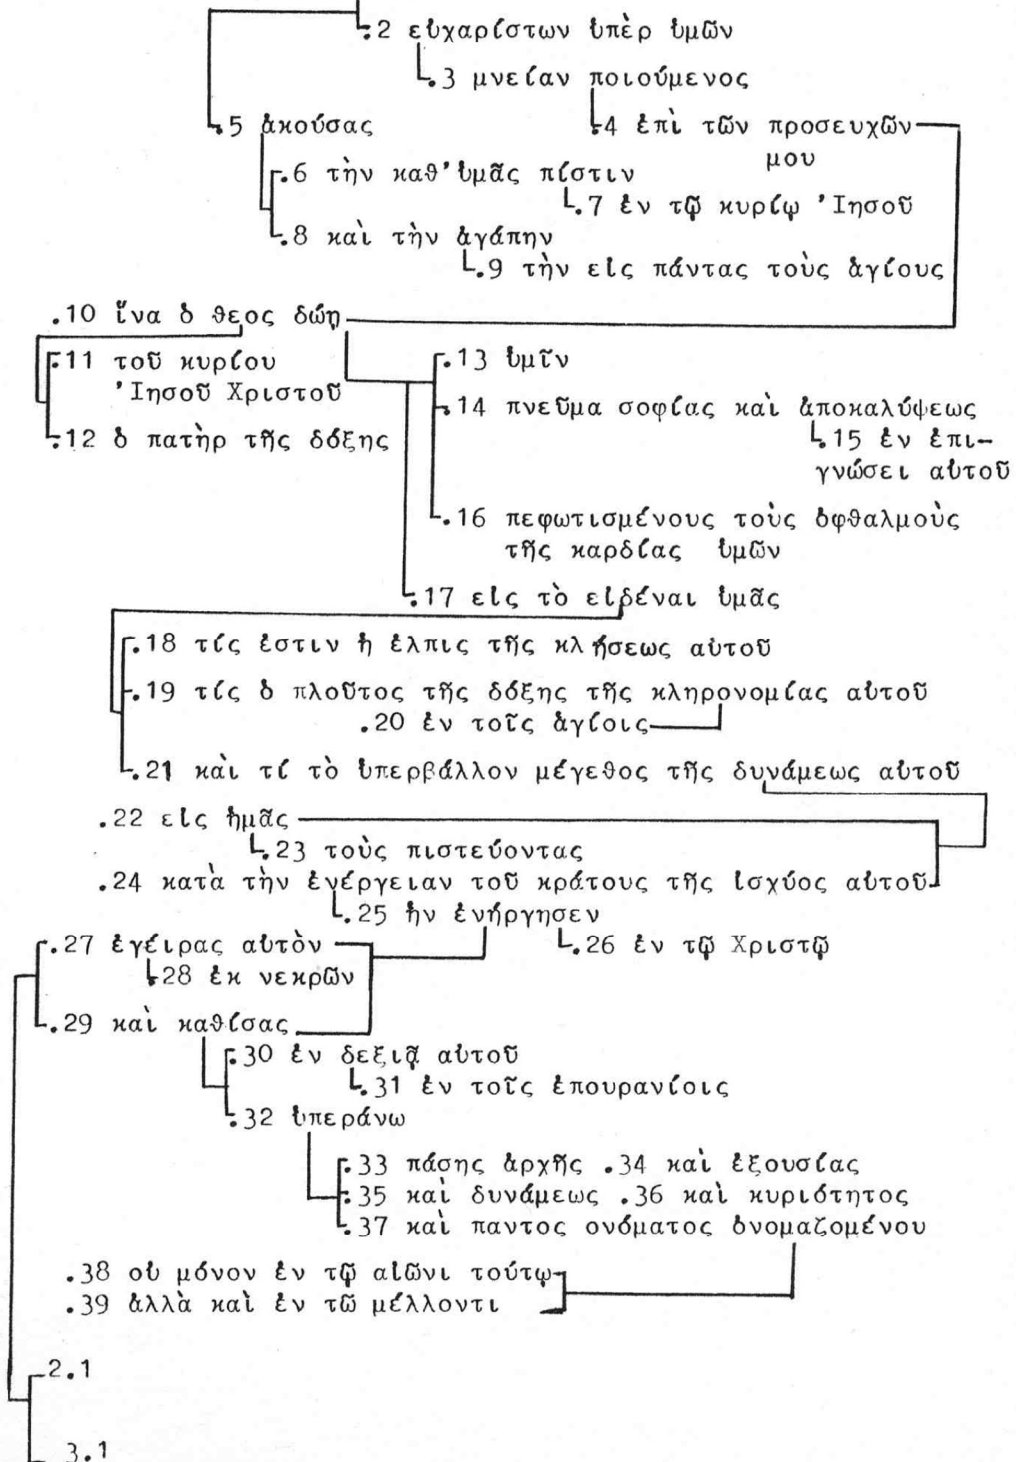 .2 εὐχαρίστων ὑπὲρ ὑμῶν
.3 μνείαν ποιούμενος
.5 ἀκούσας .4 ἐπὶ τῶν προσευχῶν
μου
.6 τὴν καθ'ὑμᾶς πίστιν
.7 ἐν τῷ κυρίῳ 'Ιησοῦ
.8 καὶ τὴν ἀγάπην
.9 τὴν εἰς πάντας τοὺς ἁγίους
.10 ἵνα ὁ θεος δώῃ
.11 τοῦ κυρίου .13 ὑμῖν
'Ιησοῦ Χριστοῦ .14 πνεῦμα σοφίας καὶ ἀποκαλύψεως
.12 ὁ πατὴρ τῆς δόξης .15 ἐν ἐπι-
γνώσει αὐτοῦ
.16 πεφωτισμένους τοὺς ὀφθαλμοὺς
τῆς καρδίας ὑμῶν
.17 εἰς τὸ εἰδέναι ὑμᾶς
.18 τίς ἐστιν ἡ ἐλπις τῆς κλήσεως αὐτοῦ
.19 τίς ὁ πλοῦτος τῆς δόξης τῆς κληρονομίας αὐτοῦ
.20 ἐν τοῖς ἁγίοις
.21 καὶ τί τὸ ὑπερβάλλον μέγεθος τῆς δυνάμεως αὐτοῦ
.22 εἰς ἡμᾶς
.23 τοὺς πιστεύοντας
.24 κατὰ τὴν ἐνέργειαν τοῦ κράτους τῆς ἰσχύος αὐτοῦ
.25 ἡν ἐνήργησεν
.27 ἐγείρας αὐτὸν .26 ἐν τῷ Χριστῷ
.28 ἐκ νεκρῶν
.29 καὶ καθίσας
.30 ἐν δεξιᾷ αὐτοῦ
.31 ἐν τοῖς ἐπουρανίοις
.32 ὑπεράνω
.33 πάσης ἀρχῆς .34 καὶ ἐξουσίας
.35 καὶ δυνάμεως .36 καὶ κυριότητος
.37 καὶ παντος ονόματος ὀνομαζομένου
.38 οὐ μόνον ἐν τῷ αἰῶνι τούτῳ
.39 ἀλλὰ καὶ ἐν τῶ μέλλοντι
2.1
3.1